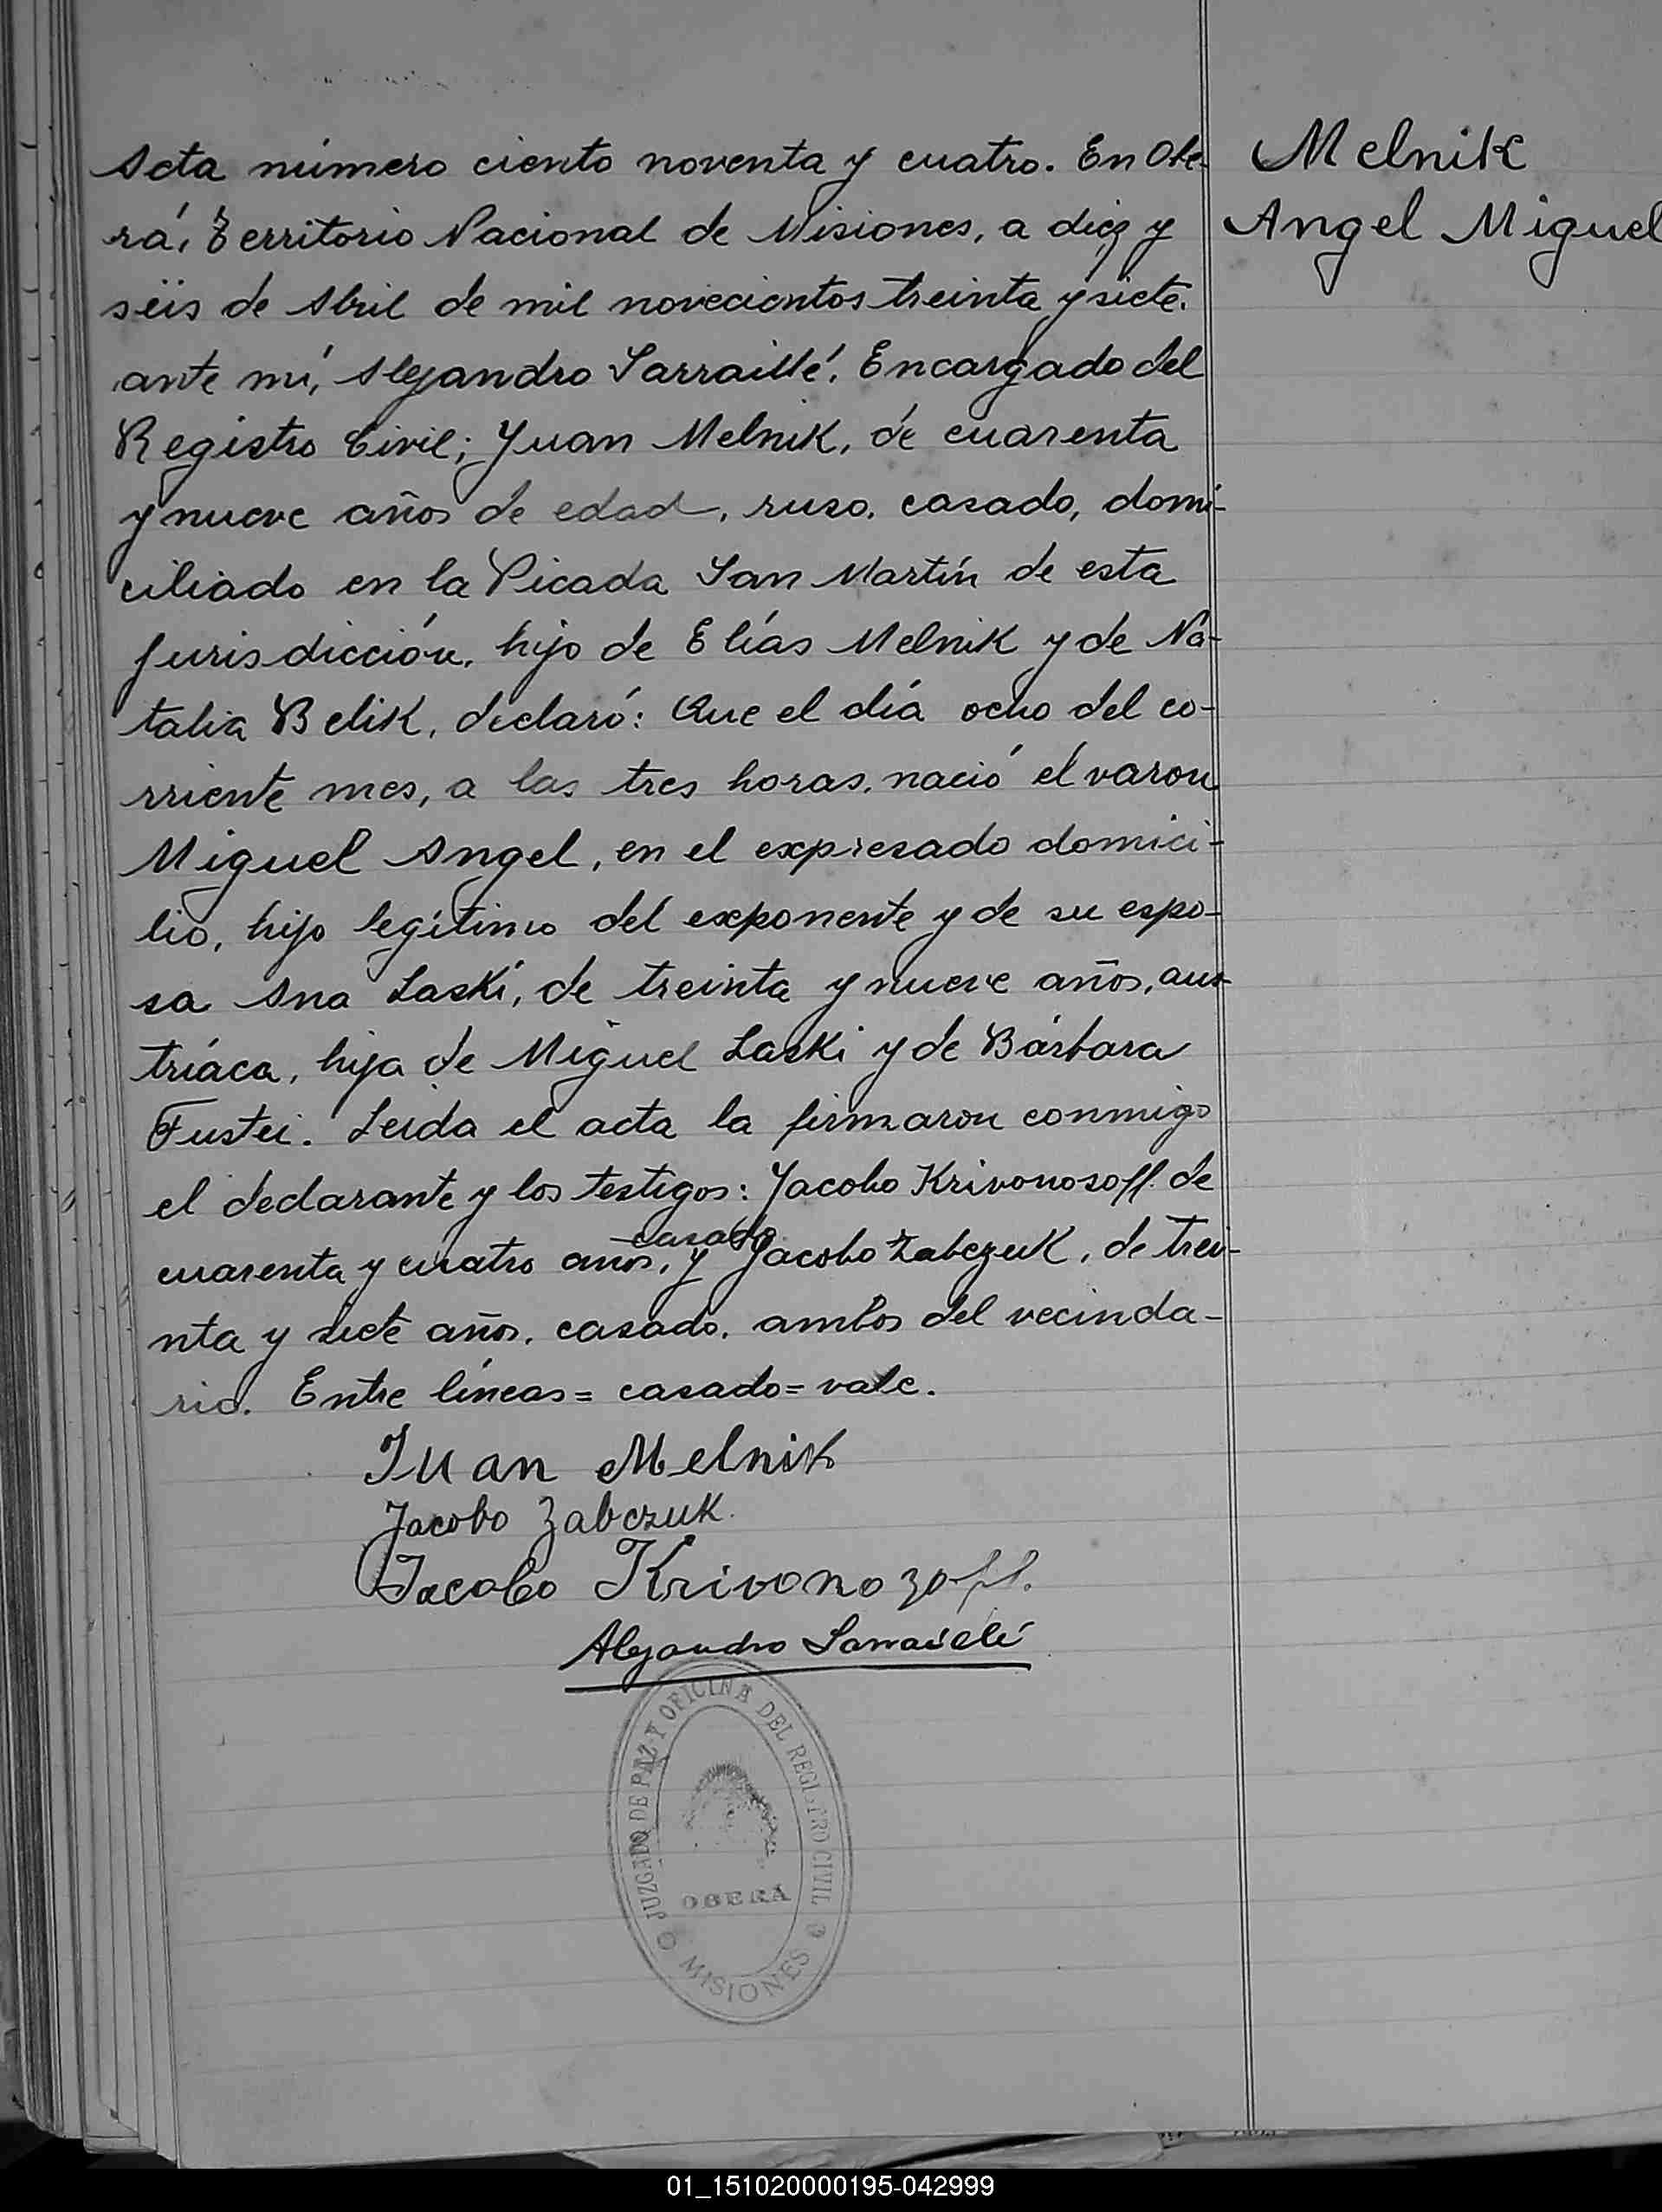 Acta número ciento noventa y cuatro. En Obe-
rá, Territorio Nacional de Misiones, a diez y
séis de Abril de mil novecientos treinta y siete.
ante mí, Alejandro Sarraillé, Encargado del
Registro Civil; Juan Melnik, de cuarenta
y nueve años de edad, ruso, casado, domi-
ciliado en la Picada San Martín de esta
jurisdicción, hijo de Elías Melnik y de Na-
talia Belik, declaró: Que el día ocho del co-
rriente mes, a las tres horas, nació el varon
Miguel Angel, en el expresado domici-
lio, hijo legítimo del exponente y de su espo-
sa Ana Laski, de treinta y nueve años, aus-
tríaca, hija de Miguel Laski y de Bárbara
Fustei. Leida el acta la firmaron conmigo
el declarante y los testigos: Jacobo Krivonosoff. de
casado
cuarenta y cuatro años, y Jacobo Zabczuk, de trei-
nta y siete años, casado, ambos del vecinda-
rio. Entre líneas = casado = vale.
Juan Melnik
Jacobo Zabczuk.
Jacobo Krivonozoff.
Alejandro Sarraillé
JUZGADO DE PAZ Y OFICINA DEL REGISTRO CIVIL
OBERÁ
MISIONES
Melnik
Angel Miguel
01_151020000195-042999